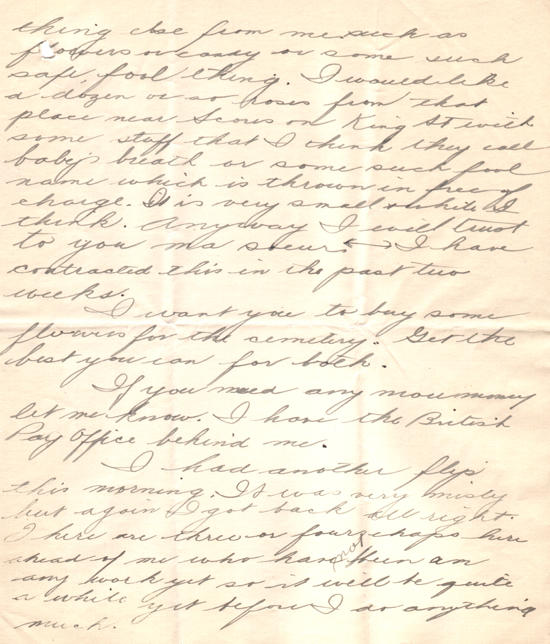 thing else from me such as
flowers or candy or some such
safe, fool thing. I would like
a dozen or so roses from that
place near Scores on King St with
some stuff that I think they call
baby's breath or some such fool
name which is thrown in free of
charge. It is very small & white I
think. Anyway I will trust
to you ma soeur. I have
contracted this in the past two
weeks.
I want you to buy some
flowers for the cemetery. Get the
best you can for both.
If you need any more money
let me know. I have the British
Pay Office behind me.
I had another flip
this morning. It was very misty
but again I got back all right.
There are three or four chaps here
ahead of me who have not been on
any work yet so it will be quite
a while yet before I do anything
much.